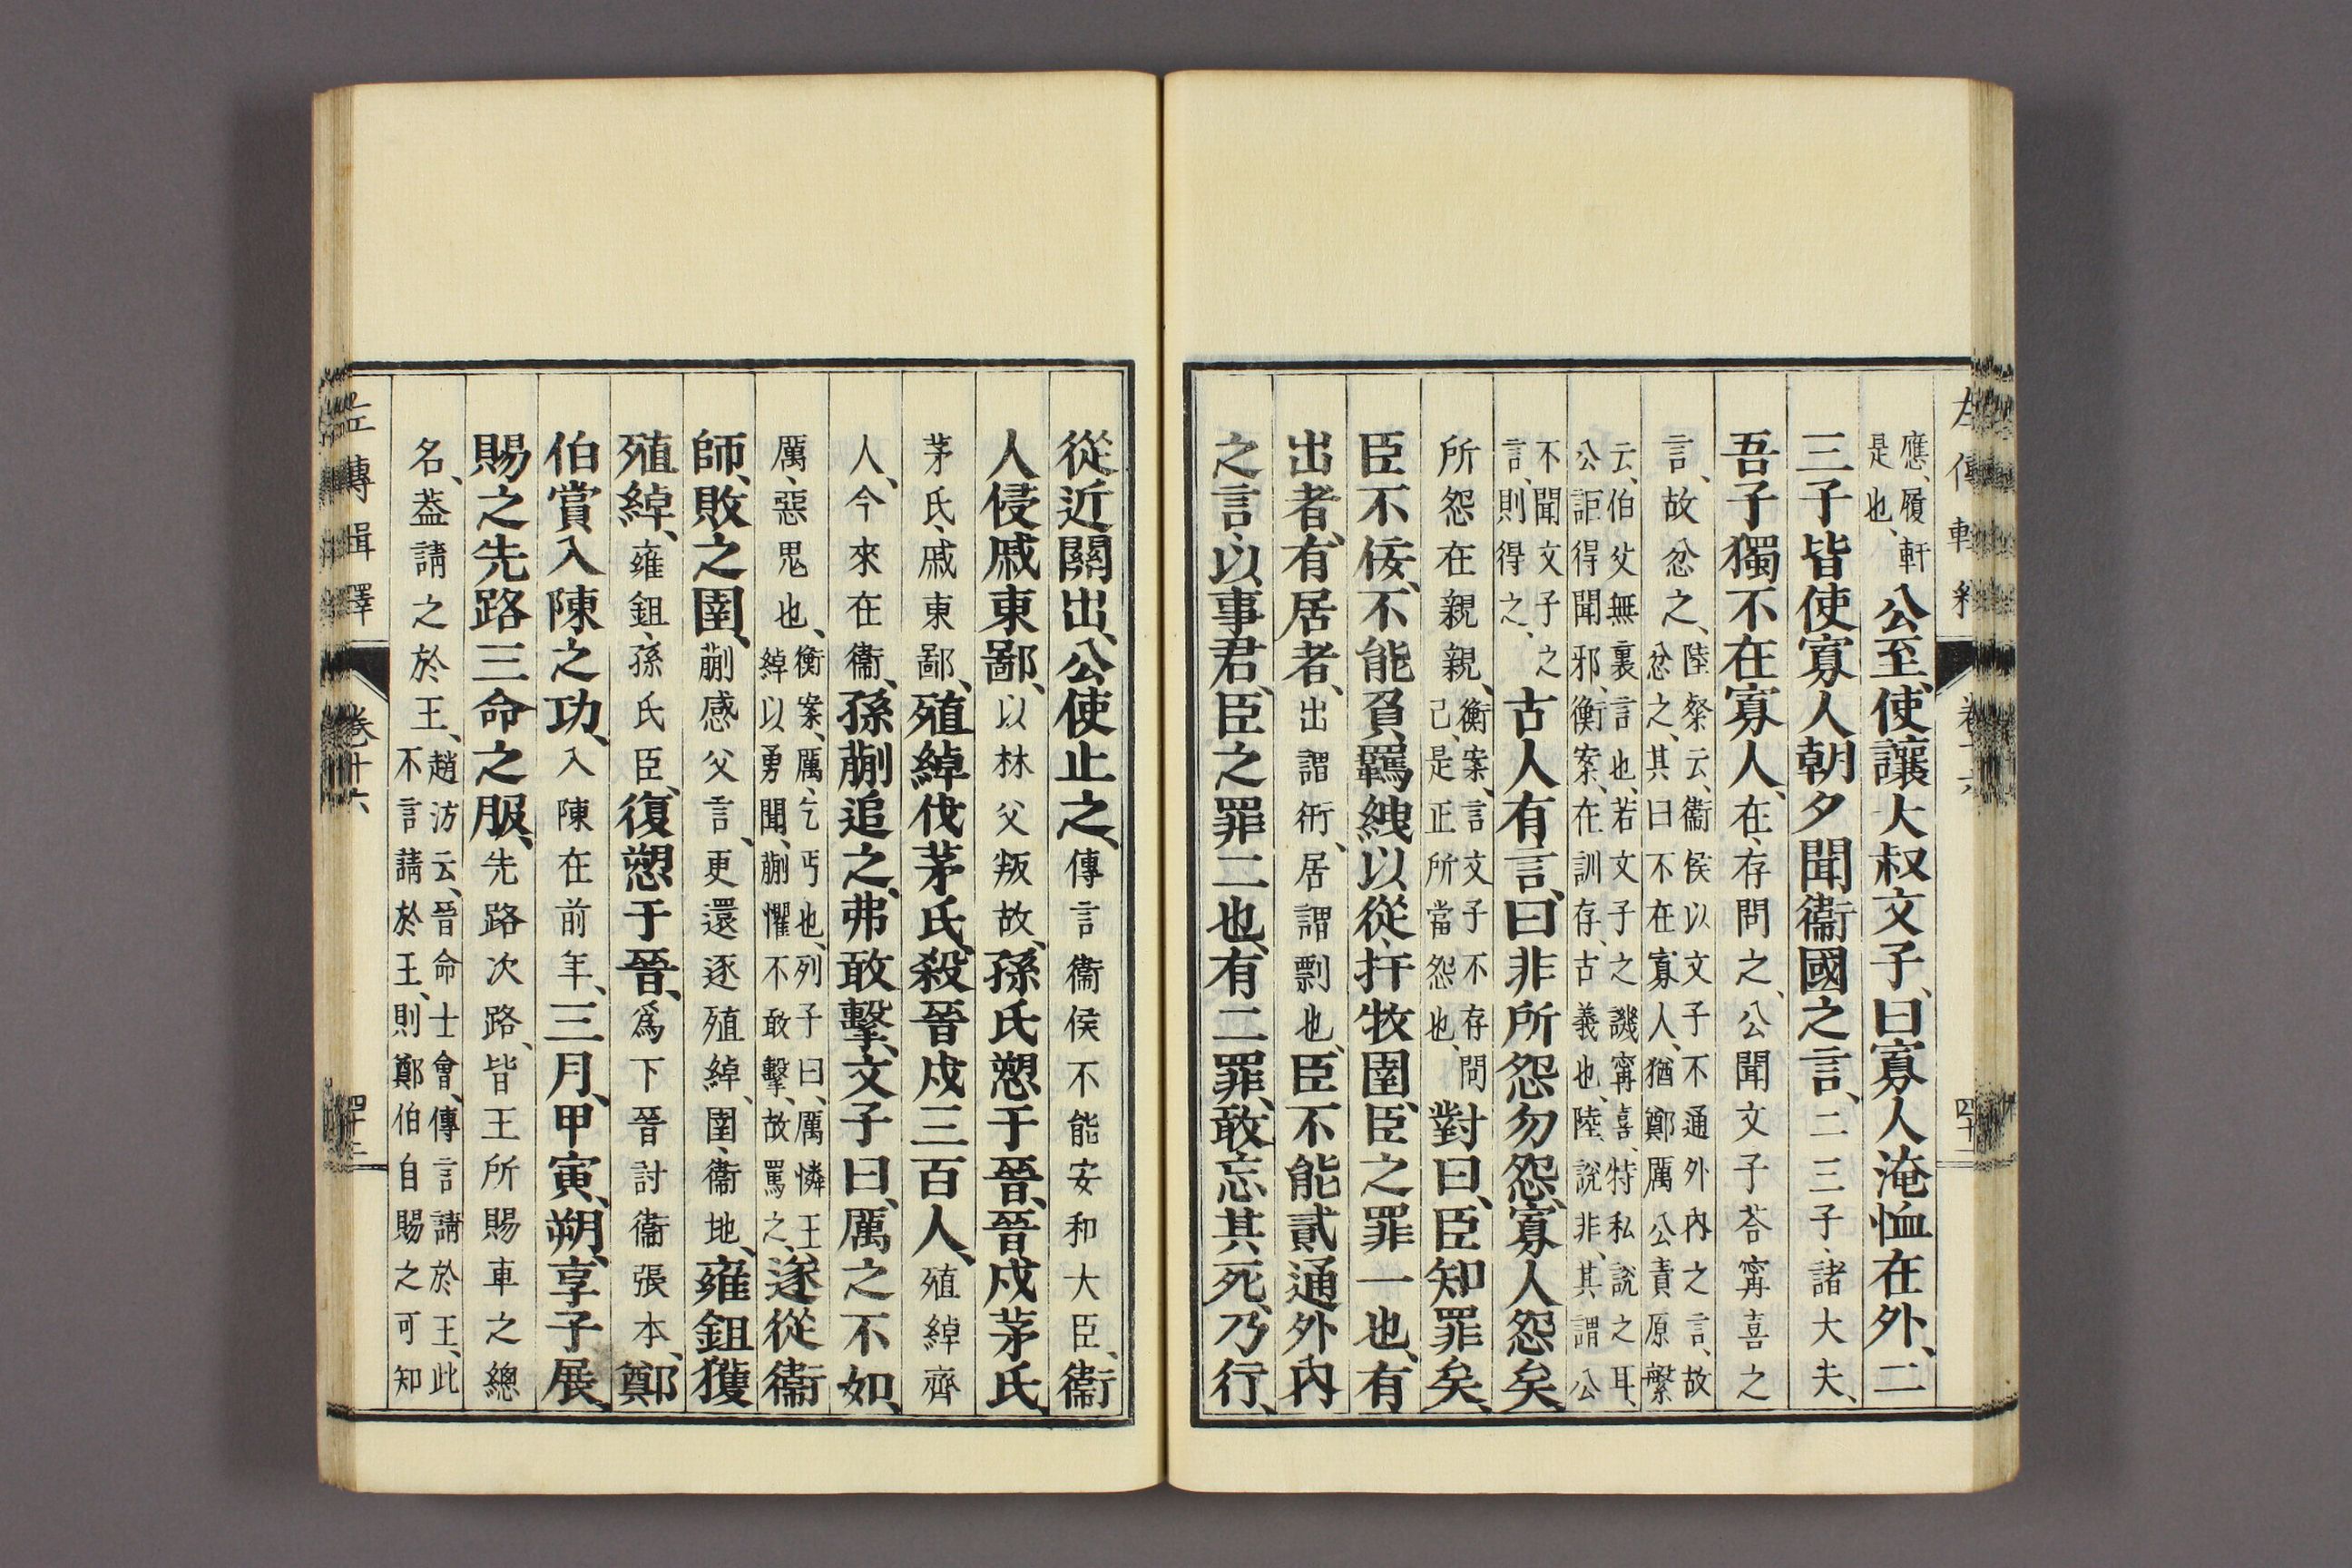 應、履軒是也、公至、使讓大叔文子、曰寡人淹恤在外、二
三子皆使寡人朝夕聞衞國之言、二三子、諸大夫、
吾子獨不在寡人、在、存問之、公聞文子荅甯喜之
言、故忿之、陸粲云、衞侯以文子不通外內之言、故忿之、其曰不在寡人、猶鄭厲公責原繁
云、伯父無裏言也、若文子之譏甯喜、特私說之耳、公詎得聞邪、衡案、在訓存、古義也、陸說非、其謂公
不聞文子之言、則得之、古人有言、曰非所怨勿怨、寡人怨矣
所怨在親親、衡案、言文子不存問己、是正所當怨也、對曰、臣知罪矣、
臣不佞、不能負羈絏以從、扞牧圉、臣之罪一也、有
出者、有居者、出謂衎、居謂剽也、臣不能貳通外內
之言、以事君、臣之罪二也、有二罪、敢忘其死、乃行、
從近關出、公使止之、傳言衞侯不能安和大臣、衞
人侵戚東鄙、以林父叛故、孫氏愬于晉、晉戍茅氏
茅氏、戚東鄙、殖綽伐茅氏、殺晉戍三百人、殖綽齊
人、今來在衞、孫蒯追之、弗敢擊、文子曰、厲之不如、
厲、惡鬼也、衡案、厲、乞丐也、列子曰、厲憐王綽以勇聞、蒯懼不敢擊、故罵之、遂從衞
師、敗之圉、蒯感父言、更還逐殖綽、圉、衞地、雍鉏獲
殖綽、雍鉏、孫氏臣、復愬于晉、爲下晉討衞張本、鄭
伯賞入陳之功、入陳在前年、三月、甲寅、朔、享子展、
賜之先路三命之服、先路次路、皆王所賜車之總
名、葢請之於王、趙汸云、晉命士會、傳言請於王、此不言請於王、則鄭伯自賜之可知
左傳輯釋
卷十六